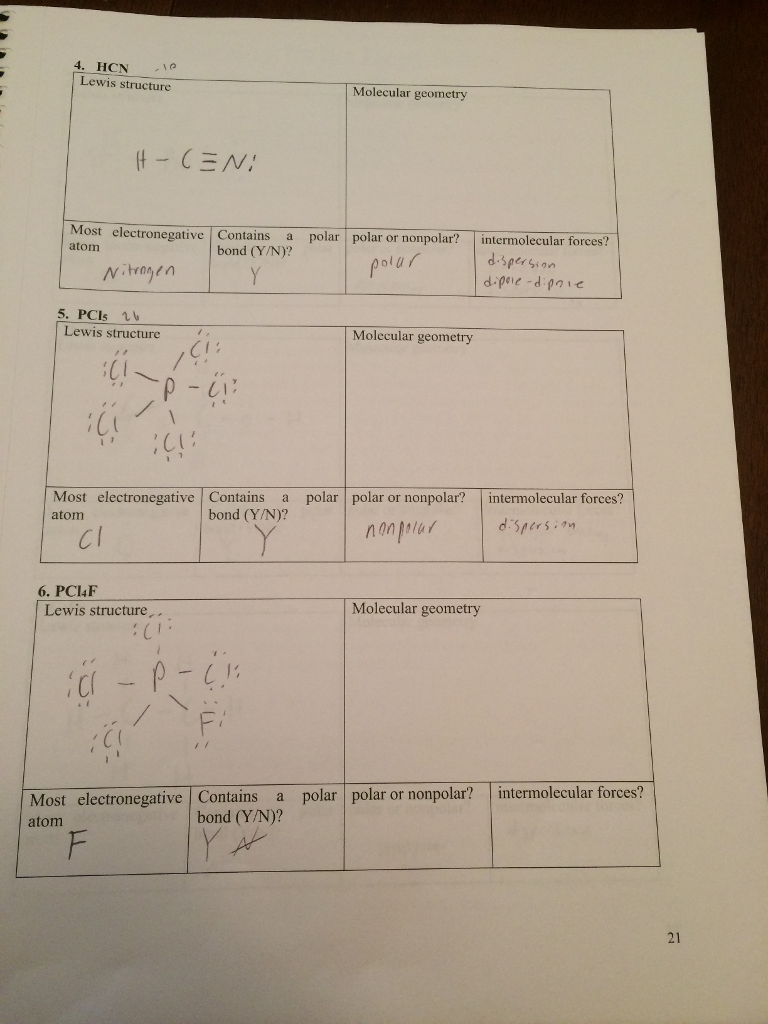 4. HCN .10
Lewis structure
Molecular geometry
H - C ≡ N:
Most electronegative atom
Nitrogen
Contains a polar bond (Y/N)?
Y
polar or nonpolar?
polar
intermolecular forces?
dispersion
dipole-dipole
5. PCl₅
Lewis structure
Molecular geometry
:Cl
Cl:
P - Cl:
:Cl
:Cl:
Most electronegative atom
Cl
Contains a polar bond (Y/N)?
Y
polar or nonpolar?
nonpolar
intermolecular forces?
dispersion
6. PCl₄F
Lewis structure
Molecular geometry
:Cl:
:Cl - P - Cl:
:Cl
F:
Most electronegative atom
F
Contains a polar bond (Y/N)?
Y N
polar or nonpolar?
intermolecular forces?
21